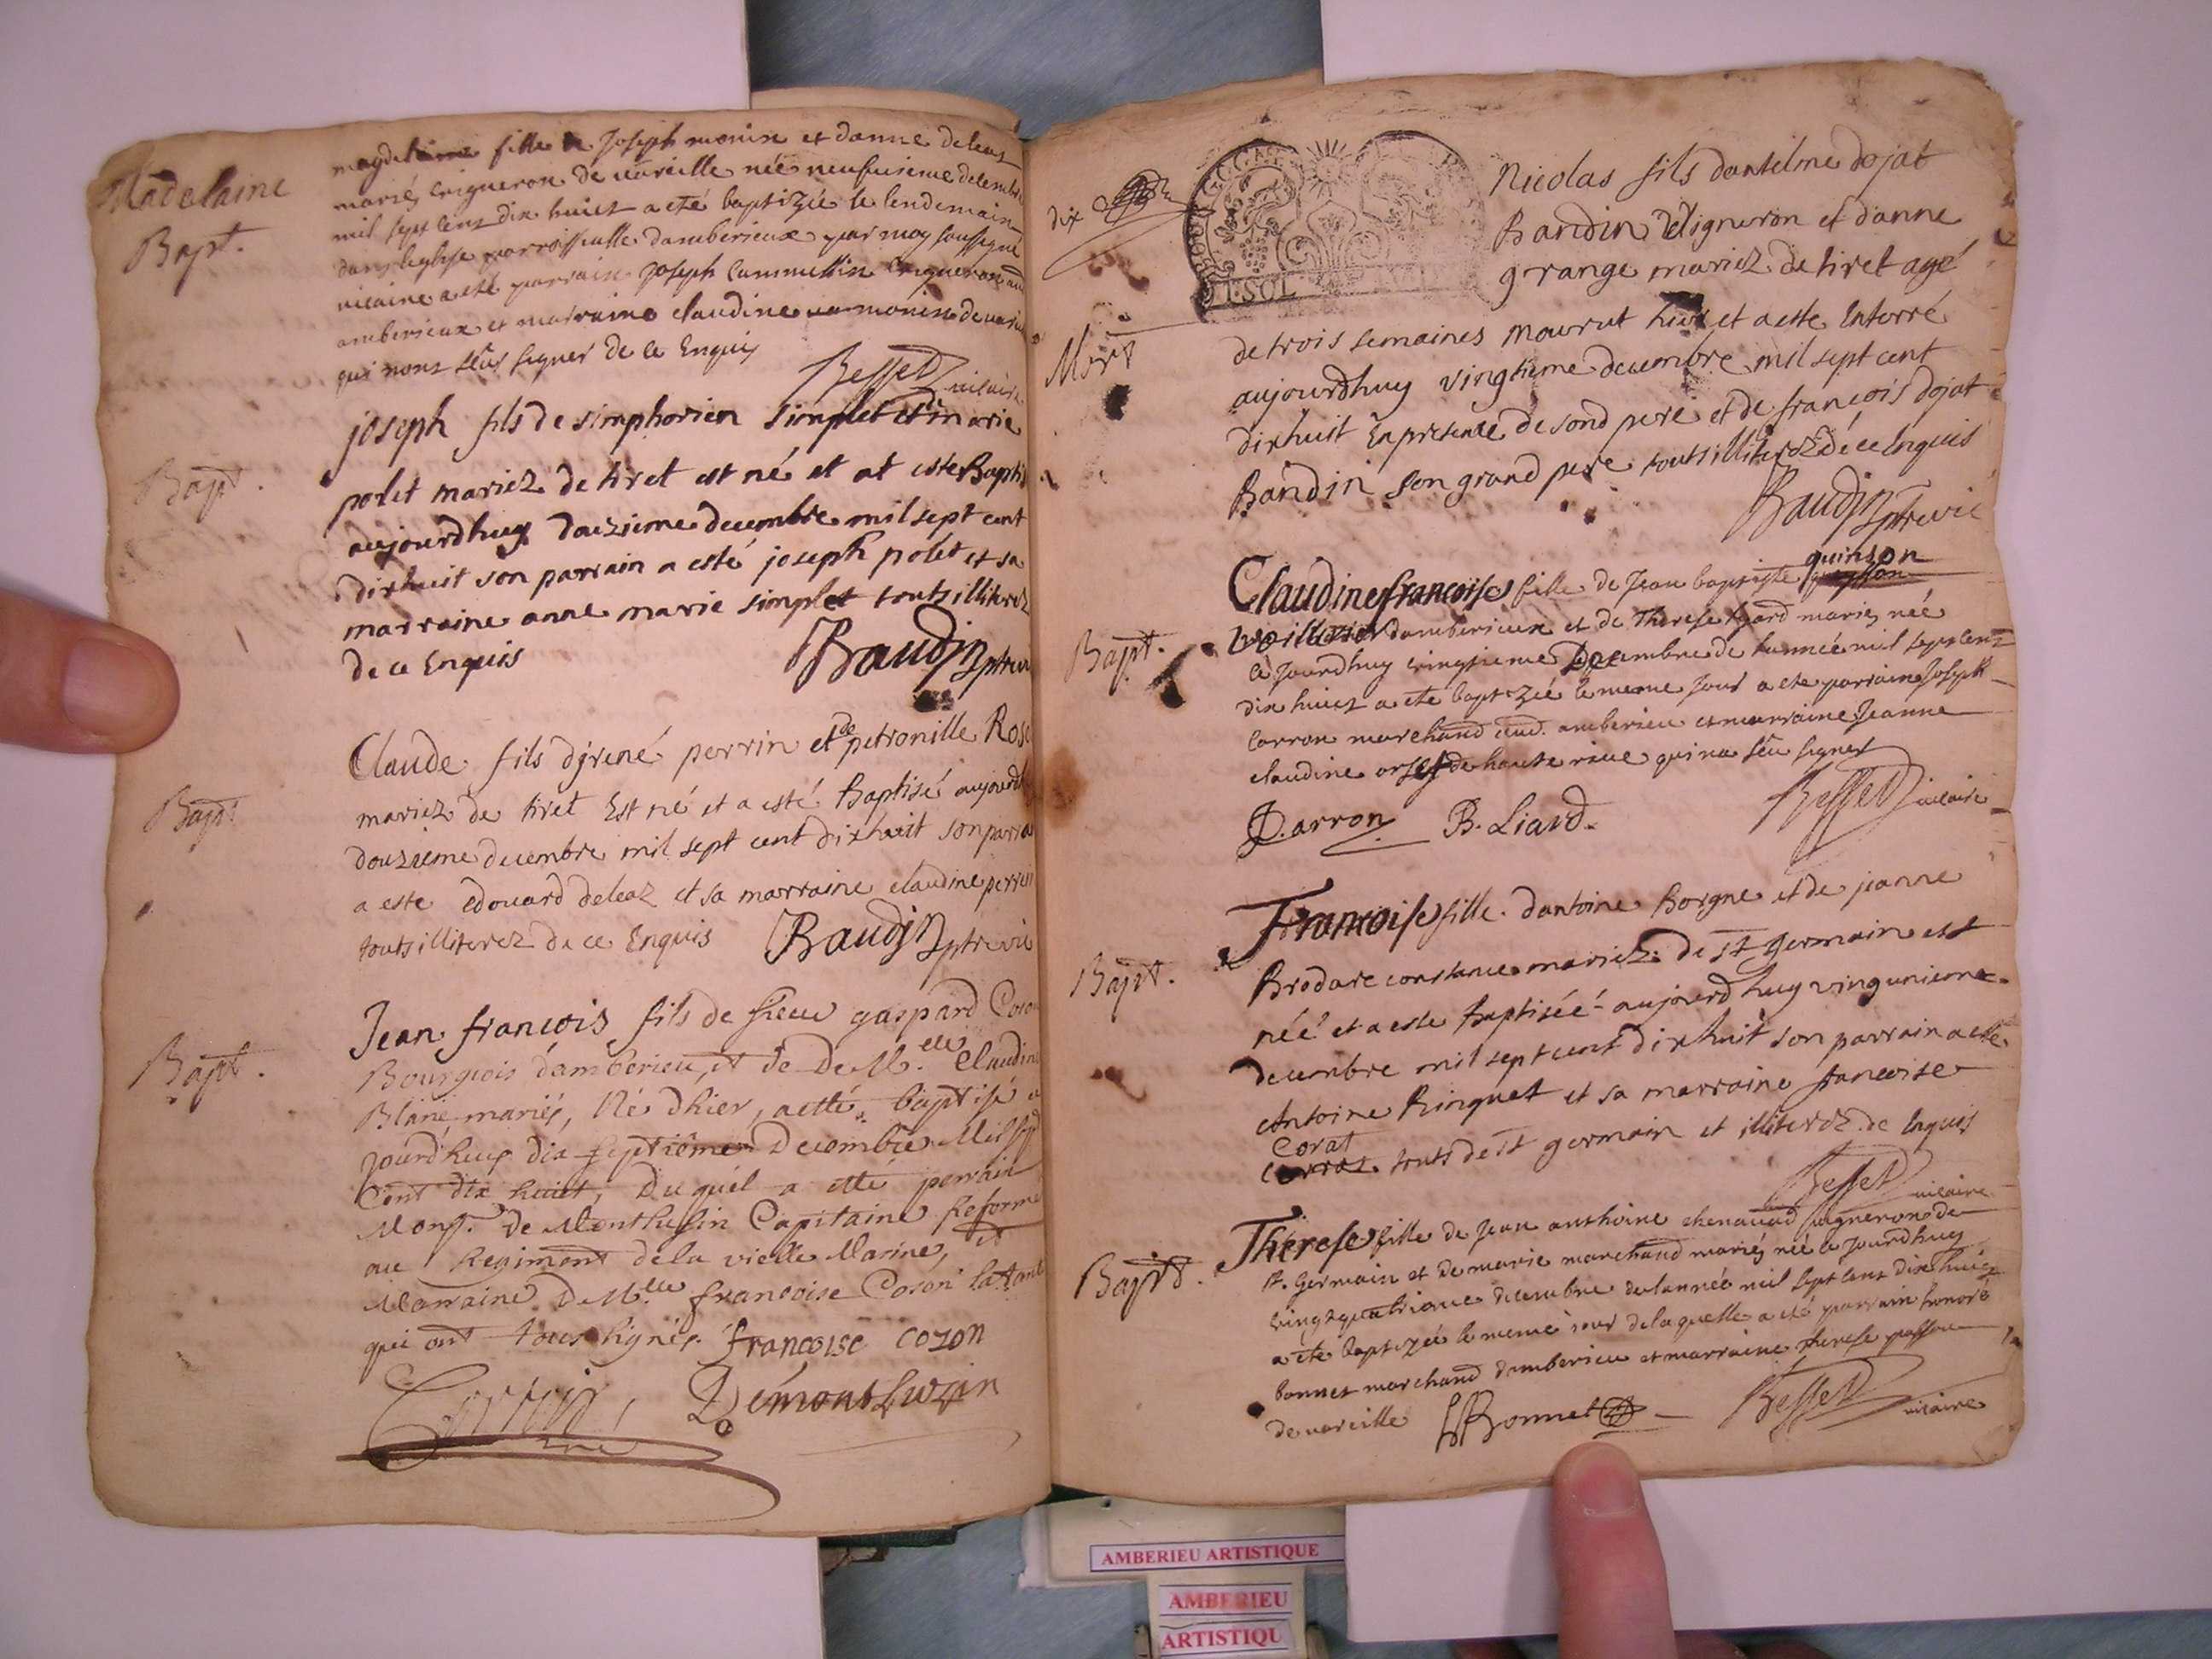 Madelaine
Bapt.
magdelaine fille de Joseph monin et danne deleas
mariés vigneron de vareille née neufvieme decembre
mil sept cens dix huict a eté baptizée le lendemain
dans leglise parroissialle damberieux par moy soussigné
vicaire a eté parrain Joseph Cummettin vigneron aud
amberieux et marraine claudine monin de vareille
qui nont sçeu signer de ce Enquis
Besset vicaire
Bapt.
joseph fils de simphorien simplet et de marie
polet mariez de tiret est né et at esté Baptisé
aujourdhuy douzieme decembre mil sept cent
dixhuit son parrain a esté joseph polet et sa
marraine anne marie simplet touts illiterez
de ce Enquis
Baudin ptre vic
Bapt
Claude fils djrené perrin et de petronille Rose
mariez de tiret Est né et a esté Baptisé aujourdh
douzieme decembre mil sept cent dixhuit son parra
a este edouard deleaz et sa marraine claudine perrin
touts illiterez de ce Enquis
Baudin ptre vic
Bapt.
Jean françois fils de sieur gaspard Cozon
Bourgeois damberieu, et de DeMlle Claudine
Blanc mariés, Né dhier, a etté baptisé ce
jourdhuy dix septiême Decembre Mil sept
Cent dix huict, Duquel a etté parrain
Monsr. De Monthusin Capitaine Reformé
au Regiment de la vielle Marine, et
Marraine DeMlle françoise Cozon la tante
qui ont tous signés. françoise cozon
Demontluzin
dix
1. SOL
Mort
Nicolas fils dantelme dojat
Baudin Vigneron et danne
grange mariez de tiret agé
de trois semaines mourut hier et a esté Enterré
aujourdhuy vingtieme decembre mil sept cent
dixhuit En presence de sond pere et de françois dojat
Baudin son grand pere touts illiterez de ce Enquis
Baudin ptre vic
Bapt.
Claudine françoise fille de Jean baptiste quinson
damberieux et de Therese liard mariés née
ce Jourdhuy vingtieme Decembre de lannée mil sept cens
dix huict a eté baptizée le meme jour a ete parrain Joseph
Carron marchand aud. amberieu et marraine Jeanne
claudine orset de haute rive qui na sçeu signer
Carron
B. Liard.
Besset vicaire
Bapt.
Françoise fille dantoine Borgne et de jeanne
Brodare constance mariez de st germain est
néé et a este baptiséé aujourdhuy vingunieme
decembre mil sept cent dixhuit son parrain a esté
Antoine Ringuet et sa marraine francoise
Corat
touts de st germain et illiterez de Enquis
Besset vicaire
Bapt.
Therese fille de Jean anthoine chenavad vigneron de
st. germain et de marie marchand mariés née ce jourdhuy
vingt quatrieme decembre de lannée mil sept cens dix huict
a ete baptizée le meme jour de laquelle a eté parrain honoré
bonnet marchand damberieu et marraine therese
de vareille
Bonnet
Besset vicaire
AMBERIEU ARTISTIQUE
AMBERIEU
ARTISTIQU